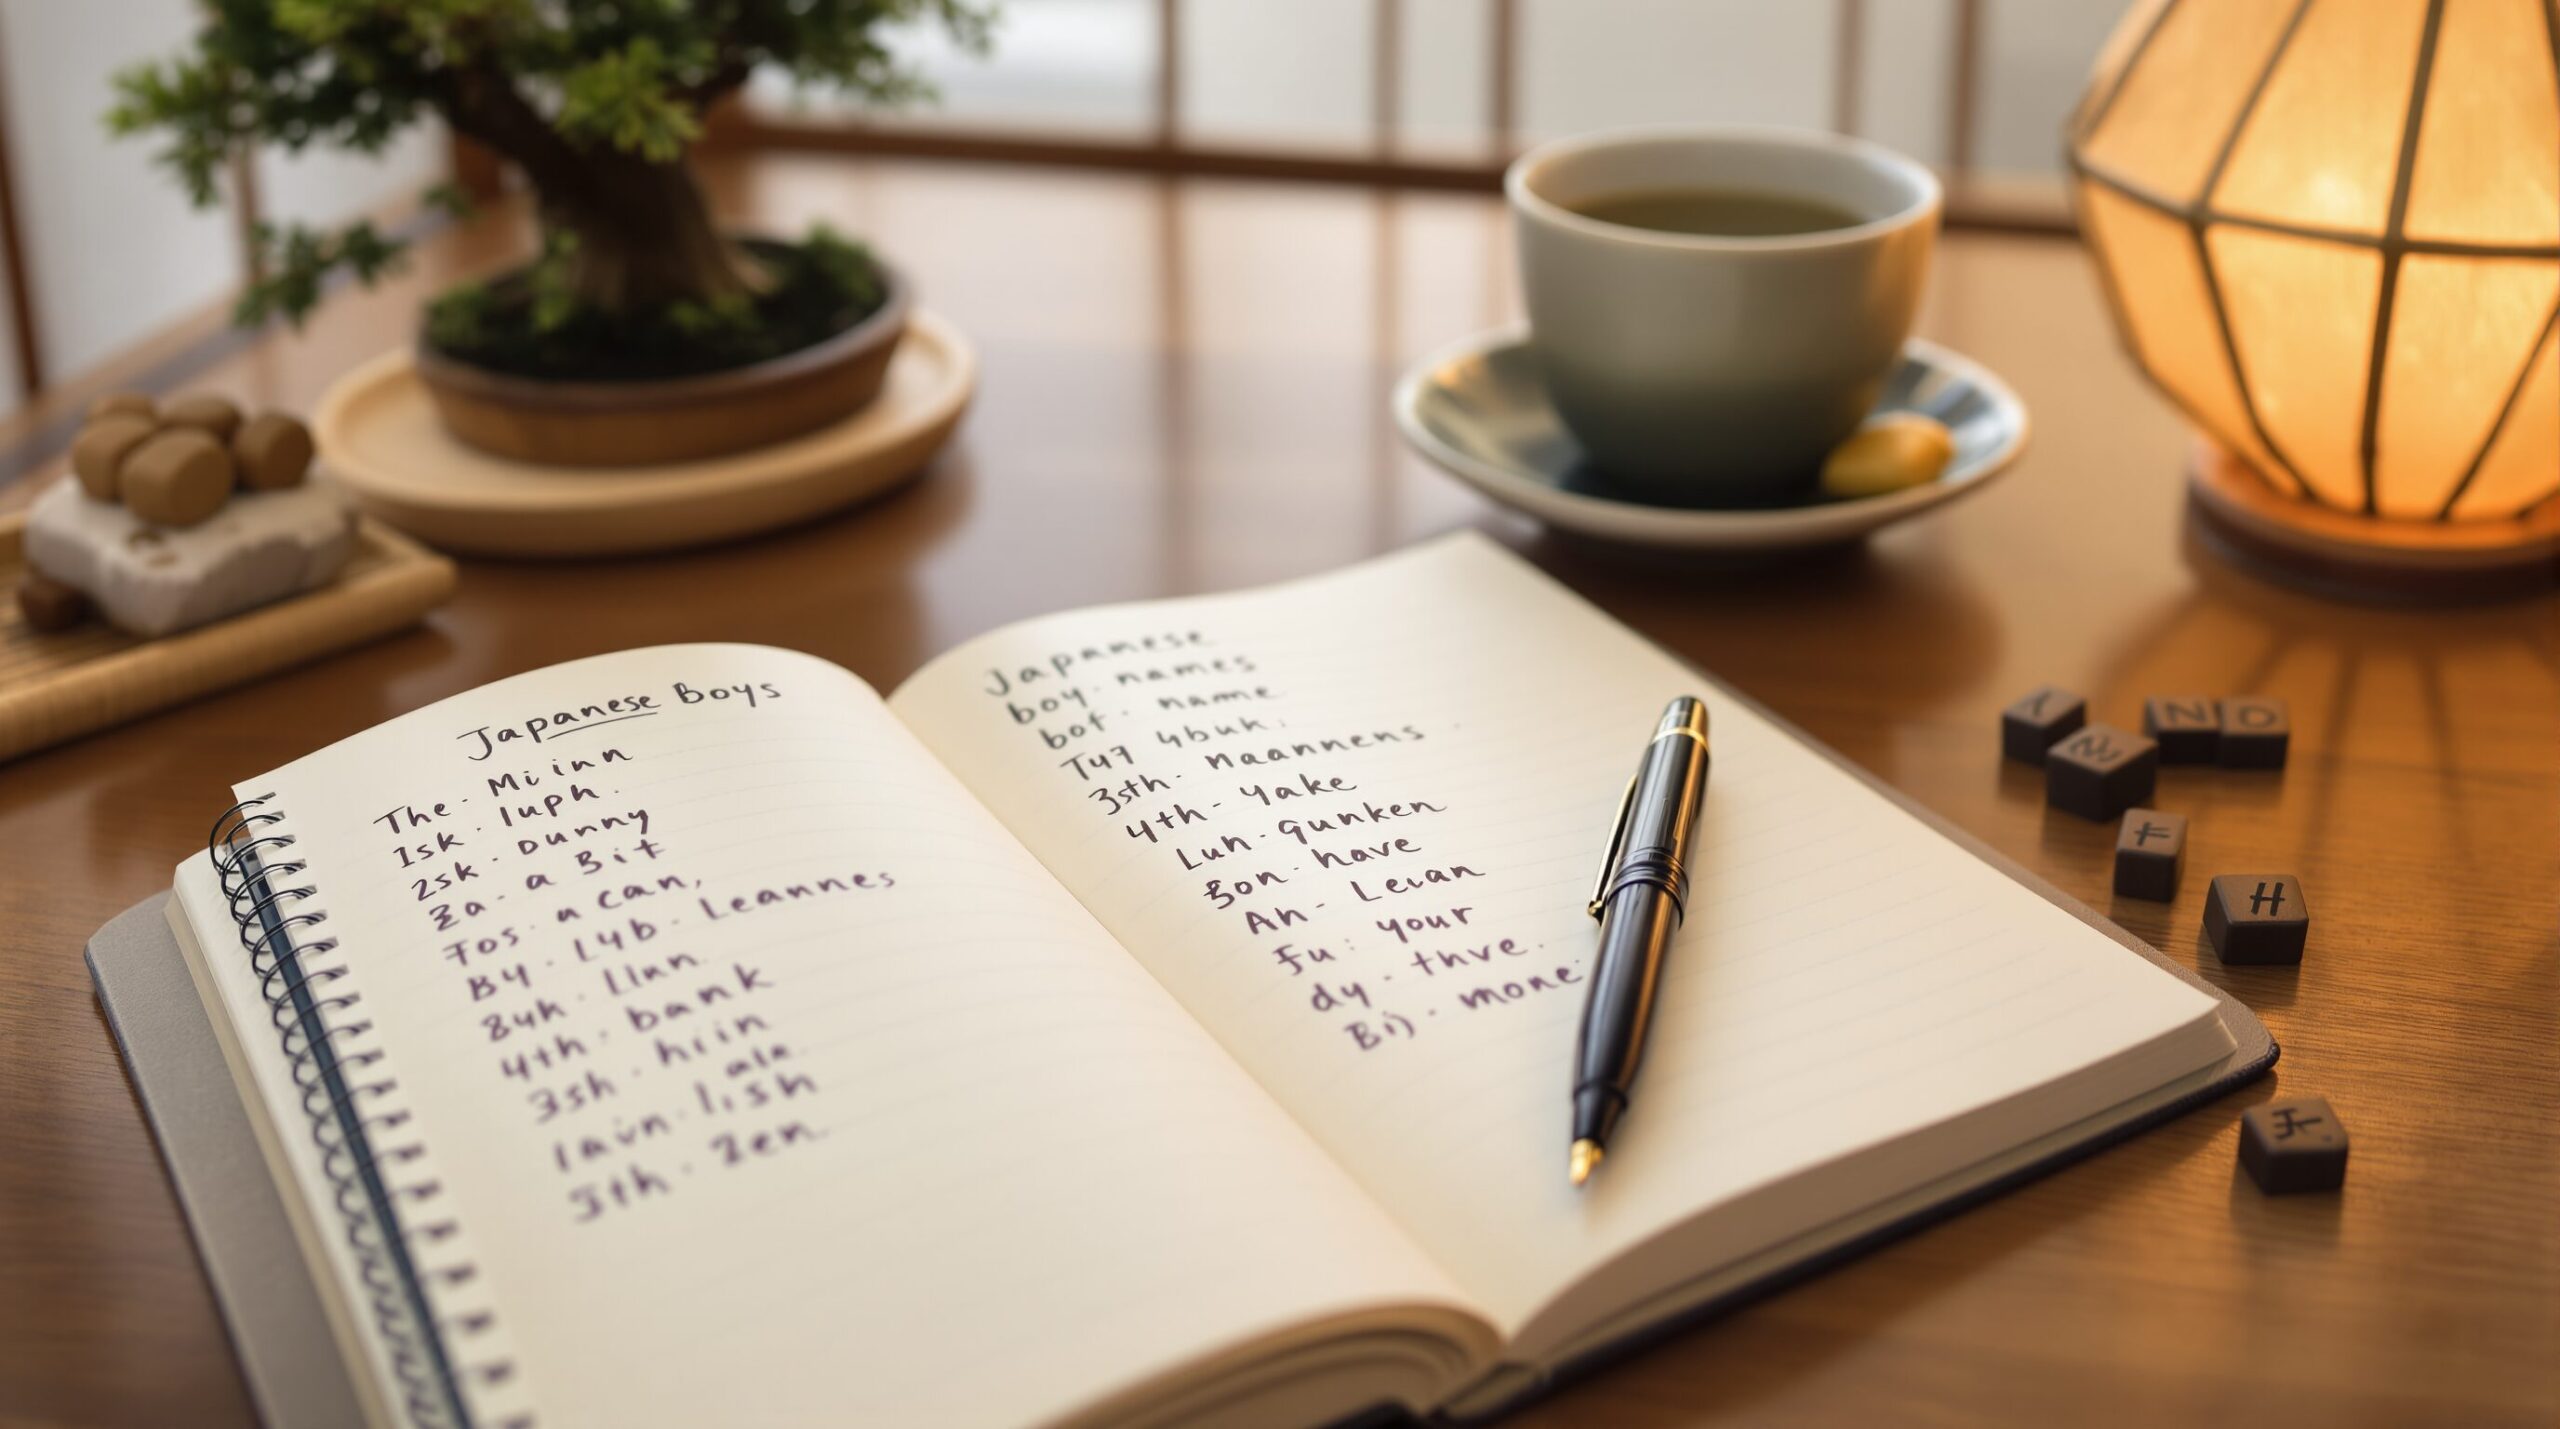 Japanese Boys
The. Miinn
1sk. 1uph.
2sk. Dunny
Za. a Bit
Fos. a can,
By. L4b. Leannes
84h. llnn.
4th. bank
3sh. hiin
ala
1ain. lish
3th. Zen.
Japanese
boy. names
bot. name
T47 4buh.
3sth. naannens
4th- yake
Luh. gunken
Bon. have
An- Levan
Fu: your
dy. thve.
Bi). mone
N O
H